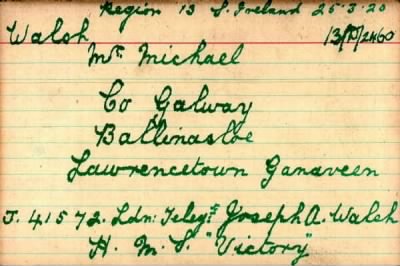 Region 13 S. Ireland 25.3.20
Walsh 13/P/2460
Mr. Michael
Co Galway
Ballinasloe
Lawrencetown Ganaveen
J. 41572. Ldn: Telegt Joseph A. Walsh
H. M. S. "Victory"